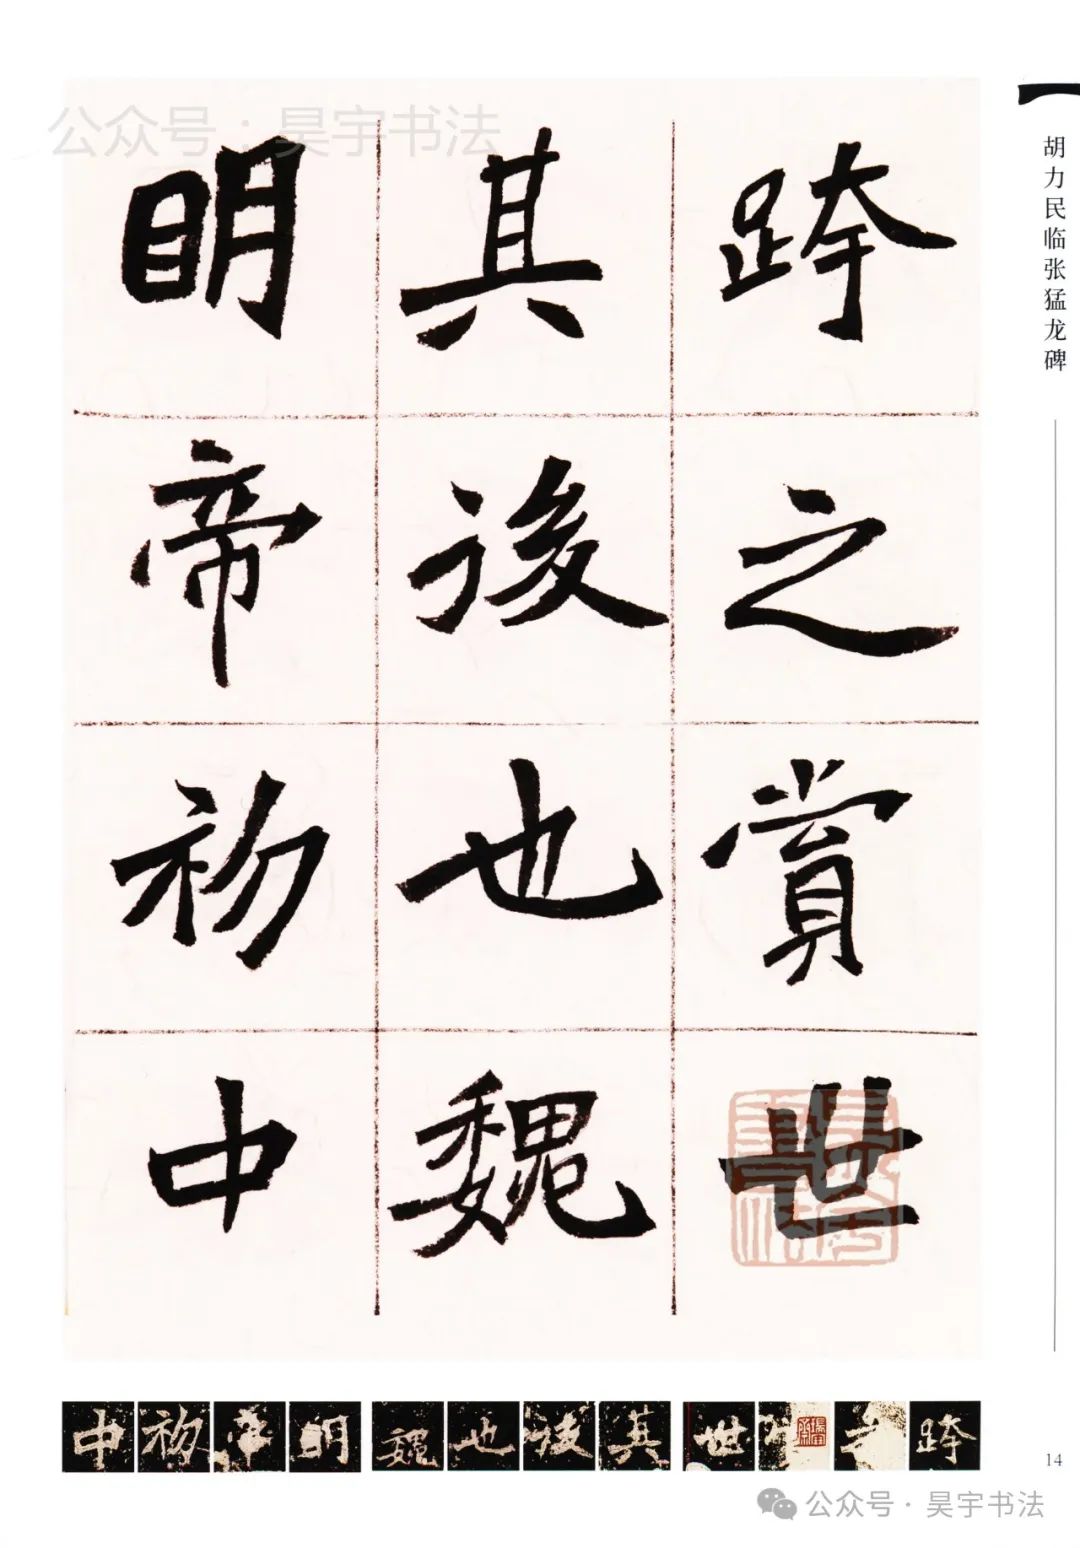 公众号：昊宇书法
胡力民临张猛龙碑
跨之賞世
其後也魏
明帝初中
中初帝明魏也後其世之跨
14
公众号·昊宇书法